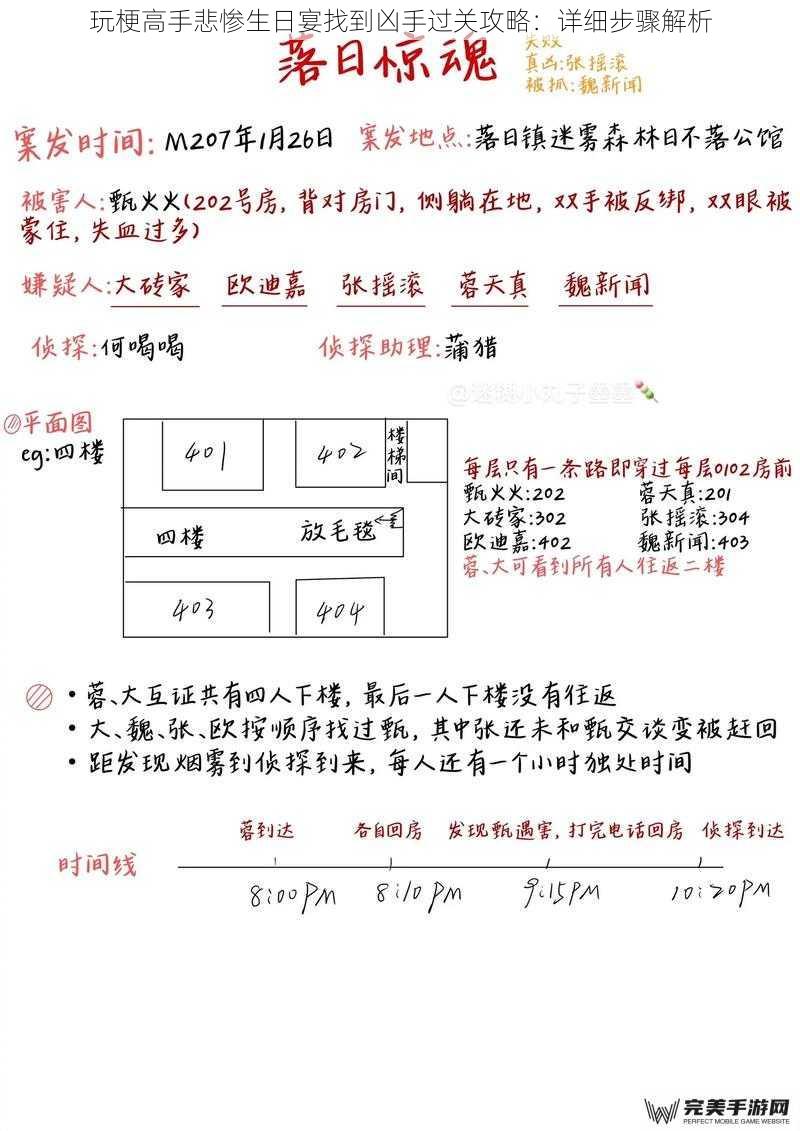 玩梗高手悲惨生日宴找到凶手过关攻略：详细步骤解析
落日惊魂
失败
真凶:张摇滚
被抓:魏新闻
案发时间: M207年1月26日 案发地点:落日镇迷雾森林日不落公馆
被害人:甄火火(202号房, 背对房门, 侧躺在地, 双手被反绑, 双眼被
蒙住, 失血过多)
嫌疑人:大砖家 欧迪嘉 张摇滚 蓉天真 魏新闻
侦探:何喝喝 侦探助理:蒲猎
平面图
eg:四楼
401
402
楼梯间
四楼
放毛毯
403
404
每层只有一条路即穿过每层0102房前
甄火火:202 蓉天真:201
大砖家:302 张摇滚:304
欧迪嘉:402 魏新闻:403
蓉、大可看到所有人往返二楼
• 蓉、大互证共有四人下楼, 最后一人下楼没有往返
• 大、魏、张、欧按顺序找过甄, 其中张还未和甄交谈变被赶回
• 距发现烟雾到侦探到来, 每人还有一个小时独处时间
蓉到达 各自回房 发现甄遇害, 打完电话回房 侦探到达
时间线
8:00PM 8:10PM 9:15PM 10:20PM
完美手游网
PERFECT MOBILE GAME WEBSITE